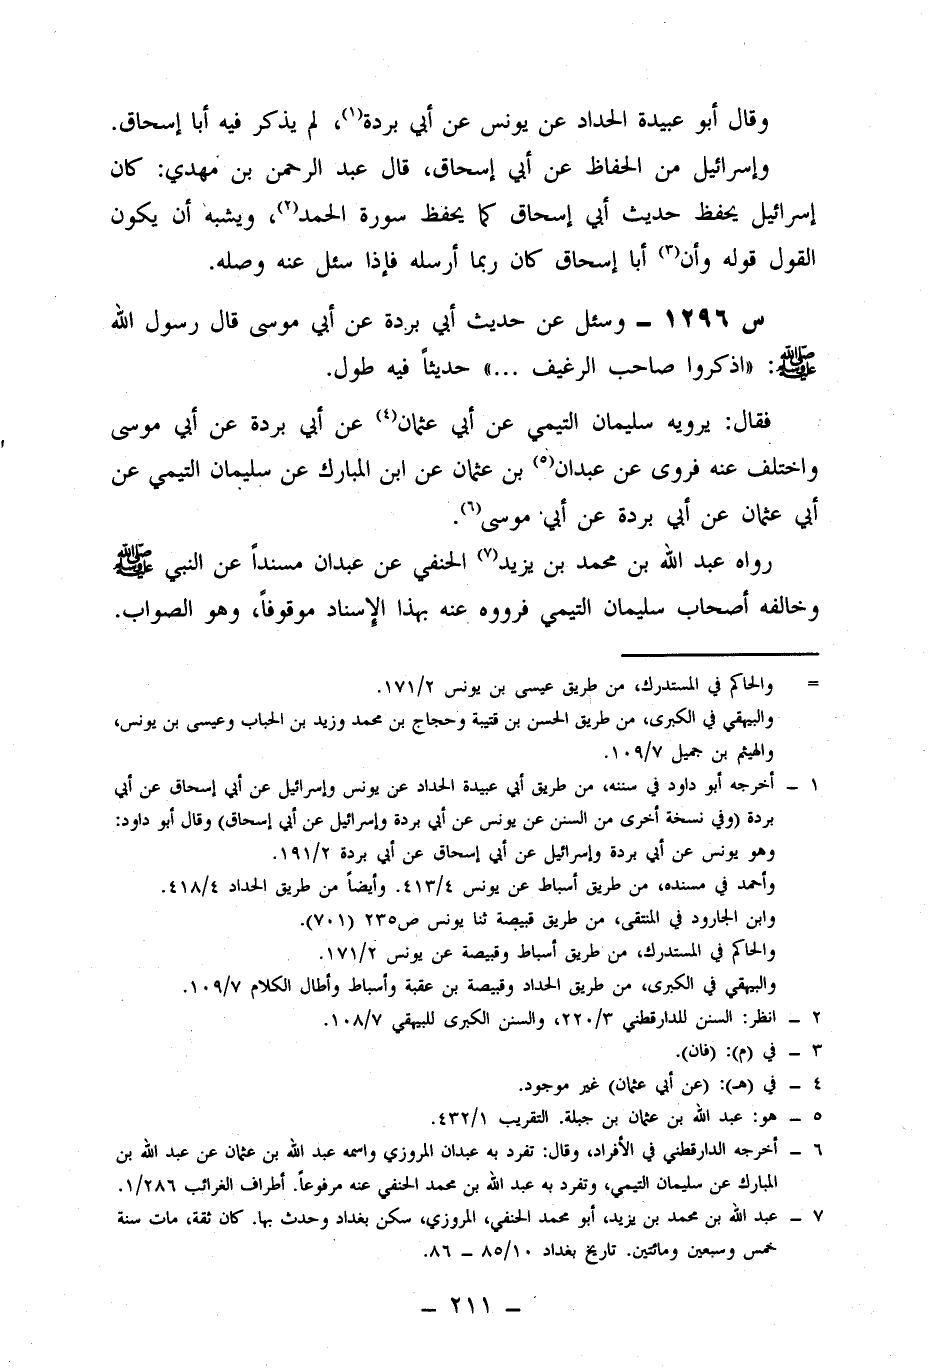 وقال أبو عبيدة الحداد عن يونس عن أبي بردة(١)، لم يذكر فيه أبا إسحاق.
وإسرائيل من الحفاظ عن أبي إسحاق، قال عبد الرحمن بن مهدي: كان
إسرائيل يحفظ حديث أبي إسحاق كما يحفظ سورة الحمد(٢)، ويشبه أن يكون
القول قوله وأن(٣) أبا إسحاق كان ربما أرسله فإذا سئل عنه وصله.
س ١٢٩٦ ـ وسئل عن حديث أبي بردة عن أبي موسى قال رسول الله
ﷺ: «اذكروا صاحب الرغيف ...» حديثاً فيه طول.
فقال: يرويه سليمان التيمي عن أبي عثمان(٤) عن أبي بردة عن أبي موسى
واختلف عنه فروى عن عبدان(٥) بن عثمان عن ابن المبارك عن سليمان التيمي عن
أبي عثمان عن أبي بردة عن أبي موسى(٦).
رواه عبد الله بن محمد بن يزيد(٧) الحنفي عن عبدان مسنداً عن النبي ﷺ
وخالفه أصحاب سليمان التيمي فرووه عنه بهذا الإسناد موقوفاً، وهو الصواب.
= والحاكم في المستدرك، من طريق عيسى بن يونس ١٧١/٢.
والبيهقي في الكبرى، من طريق الحسن بن قتيبة وحجاج بن محمد وزيد بن الحباب وعيسى بن يونس،
والهيثم بن جميل ١٠٩/٧.
١ ـ أخرجه أبو داود في سننه، من طريق أبي عبيدة الحداد عن يونس وإسرائيل عن أبي إسحاق عن أبي
بردة (وفي نسخة أخرى من السنن عن يونس عن أبي بردة وإسرائيل عن أبي إسحاق) وقال أبو داود:
وهو يونس عن أبي بردة وإسرائيل عن أبي إسحاق عن أبي بردة ١٩١/٢.
وأحمد في مسنده، من طريق أسباط عن يونس ٤١٣/٤. وأيضاً من طريق الحداد ٤١٨/٤.
وابن الجارود في المنتقى، من طريق قبيصة ثنا يونس ص٢٣٥ (٧٠١).
والحاكم في المستدرك، من طريق أسباط وقبيصة عن يونس ١٧١/٢.
والبيهقي في الكبرى، من طريق الحداد وقبيصة بن عقبة وأسباط وأطال الكلام ١٠٩/٧.
٢ ـ انظر: السنن للدارقطني ٢٢٠/٣، والسنن الكبرى للبيهقي ١٠٨/٧.
٣ ـ في (م): (فان).
٤ ـ في (هـ): (عن أبي عثمان) غير موجود.
٥ ـ هو: عبد الله بن عثمان بن جبلة. التقريب ٤٣٢/١.
٦ ـ أخرجه الدارقطني في الأفراد، وقال: تفرد به عبدان المروزي واسمه عبد الله بن عثمان عن عبد الله بن
المبارك عن سليمان التيمي، وتفرد به عبد الله بن محمد الحنفي عنه مرفوعاً. أطراف الغرائب ١/٢٨٦.
٧ ـ عبد الله بن محمد بن يزيد، أبو محمد الحنفي، المروزي، سكن بغداد وحدث بها. كان ثقة، مات سنة
خمس وسبعين ومائتين. تاريخ بغداد ٨٥/١٠ ـ ٨٦.
ـ ٢١١ ـ